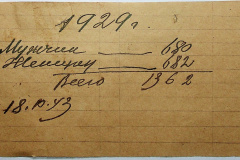 1929г.
Мужчин — 680
Женщин — 682
Всего 1362
18.10.43